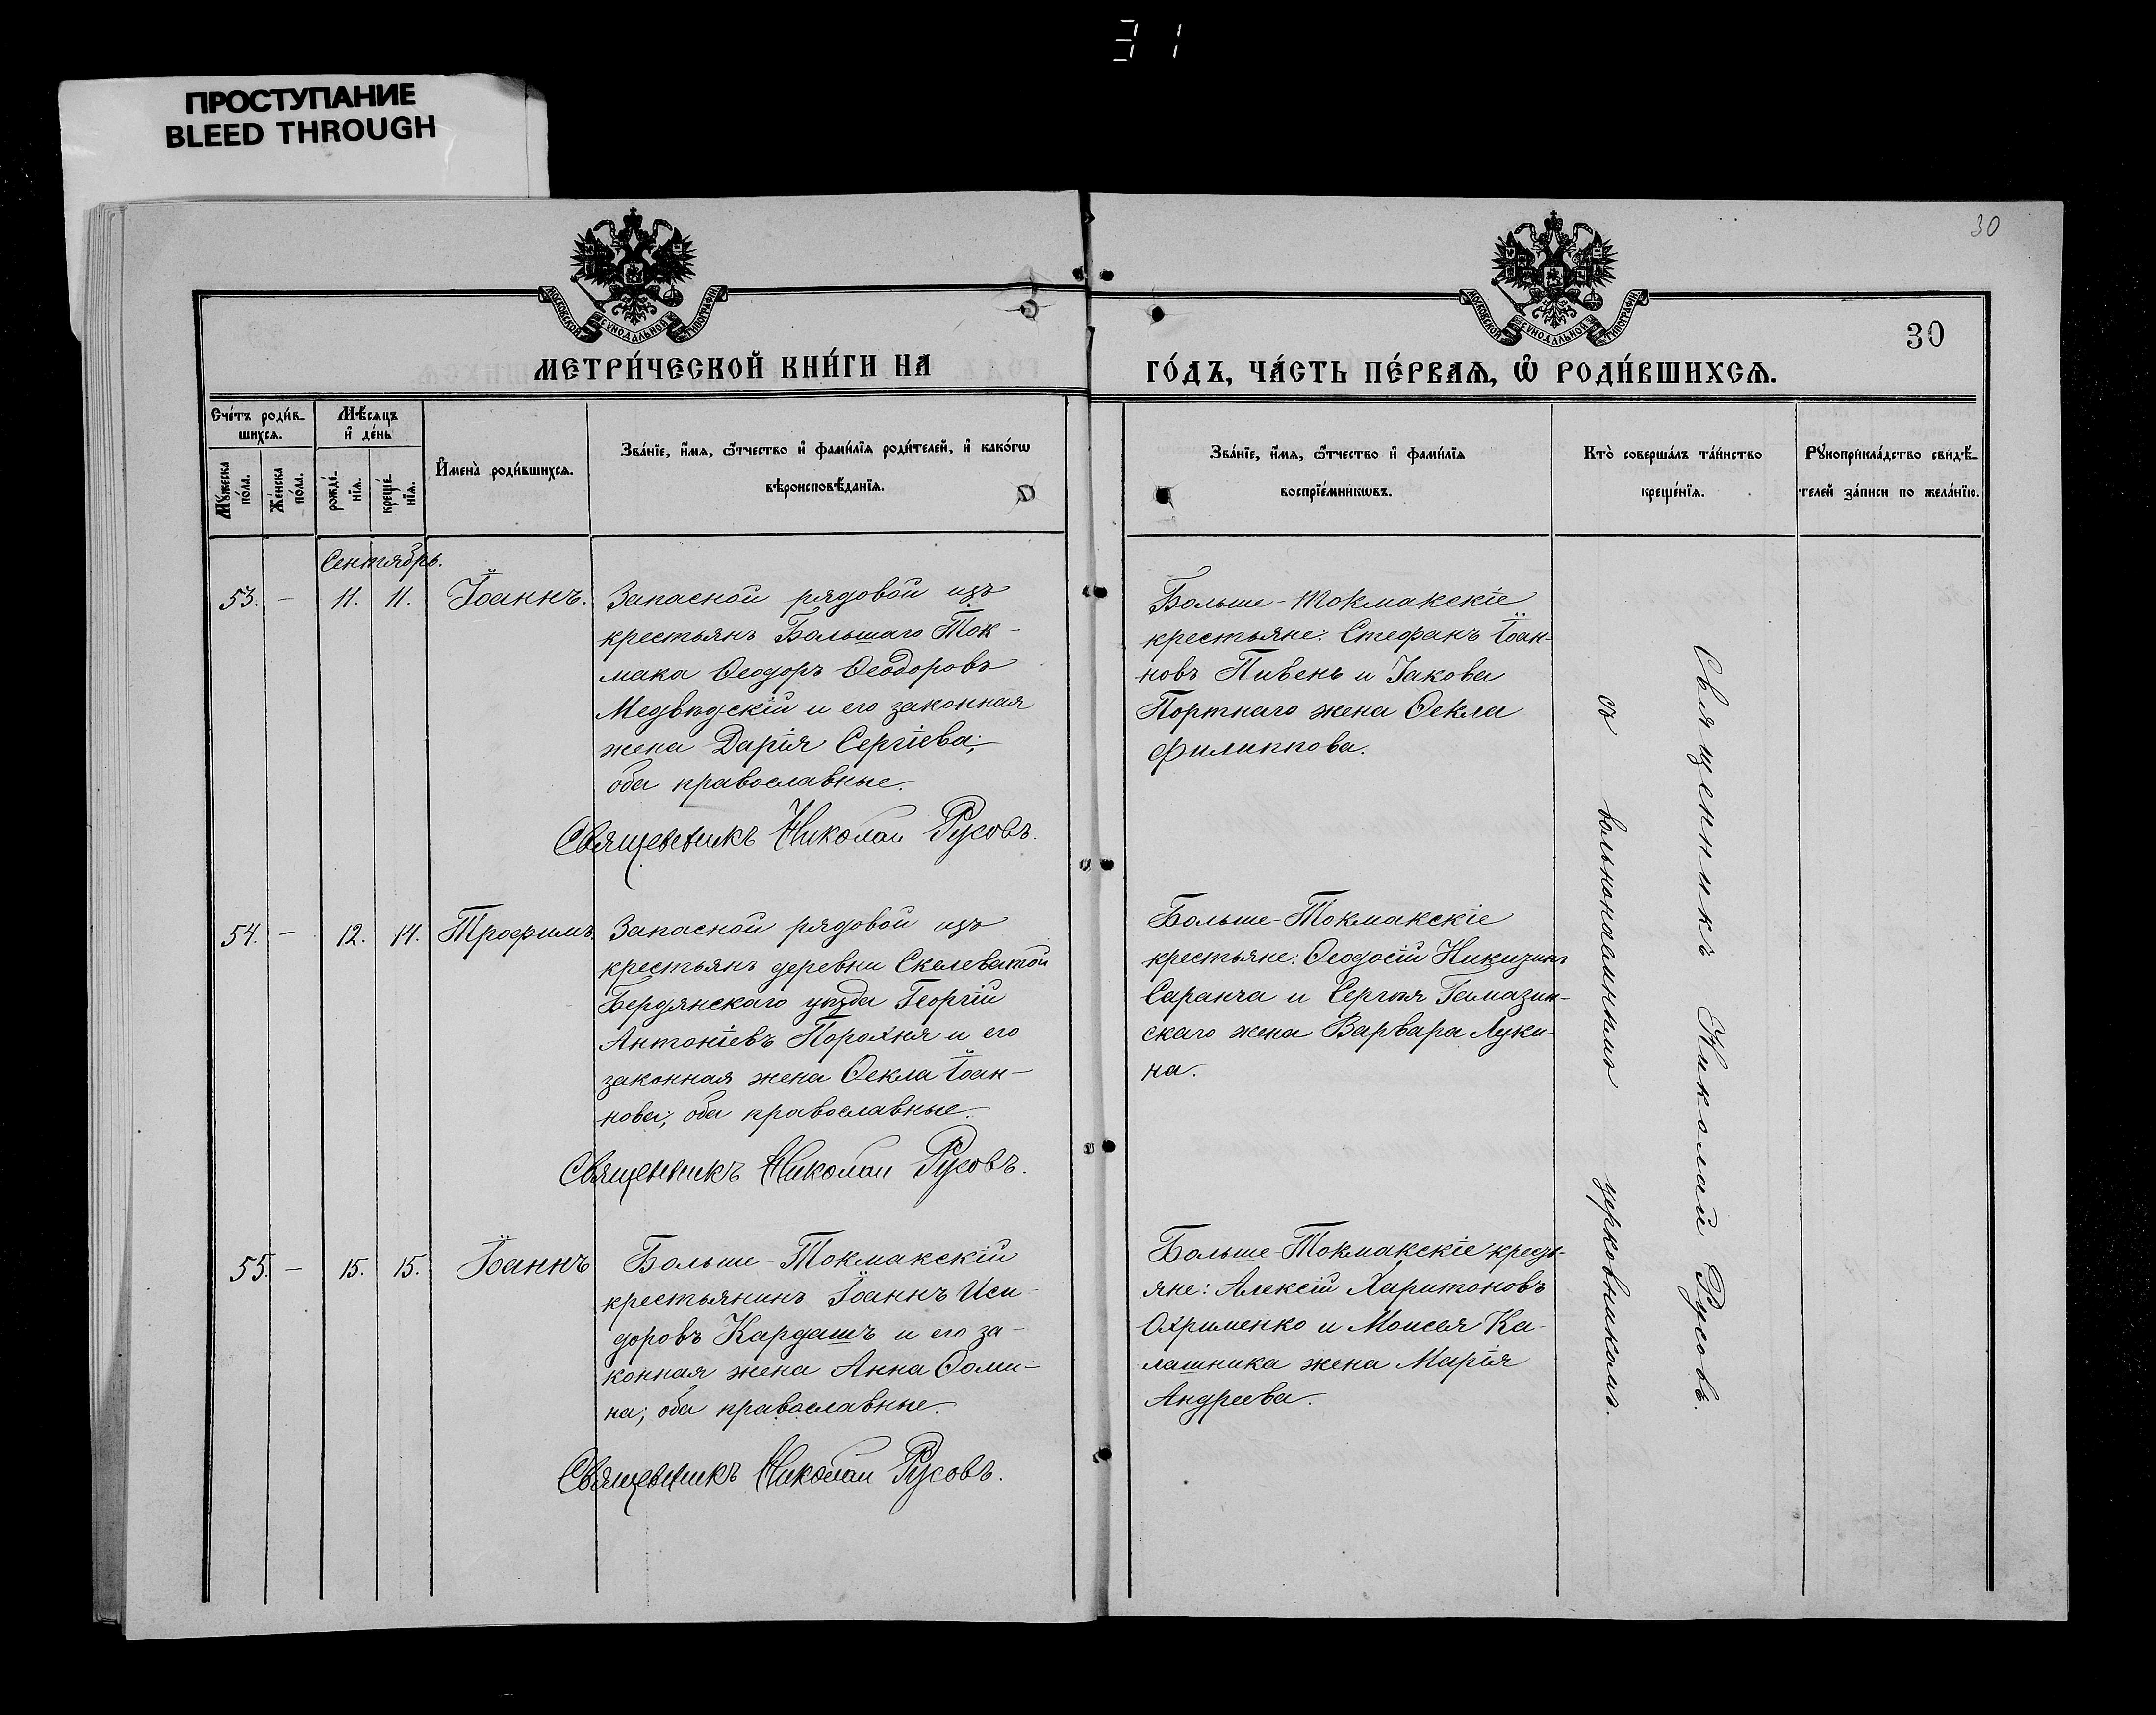 31
ПРОСТУПАНИЕ
BLEED THROUGH
30
МОСКОВСКОЙ СѴНОДАЛЬНОЙ ТИПОГРАФІИ
МОСКОВСКОЙ СѴНОДАЛЬНОЙ ТИПОГРАФІИ
30
МЕТРИ́ЧЕСКОЙ КНИ́ГИ НА
ГО́ДЪ, ЧА́СТЬ ПЕ́РВАѦ, Ѡ҆ РОДИ́ВШИХСѦ.
Сче́тъ роди́в-
шихсѧ.
Мꙋжеска
по́ла.
Же́нска
по́ла.
Мѣ́сѧцъ
и҆ де́нь
рожде́-
нїѧ.
креще́-
нїѧ.
И҆мена̀ роди́вшихсѧ.
Зва́нїе, и҆́мѧ, ѻ҆́тчество и҆ фами́лїѧ роди́телей, и҆ како́гѡ
вѣроисповѣ́данїѧ.
Зва́нїе, и҆́мѧ, ѻ҆́тчество и҆ фами́лїѧ
воспрїе́мникѡвъ.
Кто̀ соверша́лъ та́инство
креще́нїѧ.
Рꙋкоприкла́дство свидѣ́-
телей за́писи по жела́нїю.
Сентябрь.
53. — 11. 11. Іоаннъ.
Запасной рядовой изъ
крестьянъ Большаго Ток-
мака Ѳеодоръ Ѳеодоровъ
Медвѣдскій и его законная
жена Дарія Сергіева;
оба православные.
Священникъ Николай Русовъ.
Больше-Токмакскіе
крестьяне: Стефанъ Іоан-
новъ Пивень и Іакова
Портнаго жена Ѳекла
Филиппова.
54. — 12. 14. Трофимъ.
Запасной рядовой изъ
крестьянъ деревни Скелеватой
Бердянскаго уѣзда Георгій
Антоніевъ Порохня и его
законная жена Ѳекла Іоан-
нова; оба православные.
Священникъ Николай Русовъ.
Больше-Токмакскіе
крестьяне: Ѳеодосій
Саранча и Сергѣя Гамазин-
скаго жена Варвара Луки-
на.
55. — 15. 15. Іоаннъ
Больше-Токмакскій
крестьянинъ Іоаннъ Иси-
доровъ Кардашъ и его за-
конная жена Анна Ѳоми-
на; оба православные.
Священникъ Николай Русовъ.
Больше-Токмакскіе кресть-
яне: Алексій Харитоновъ
Охрименко и Моисея Ка-
лашника жена Марія
Андреева.
Священникъ Николай Русовъ.
съ вольнонаемнымъ церковникомъ.